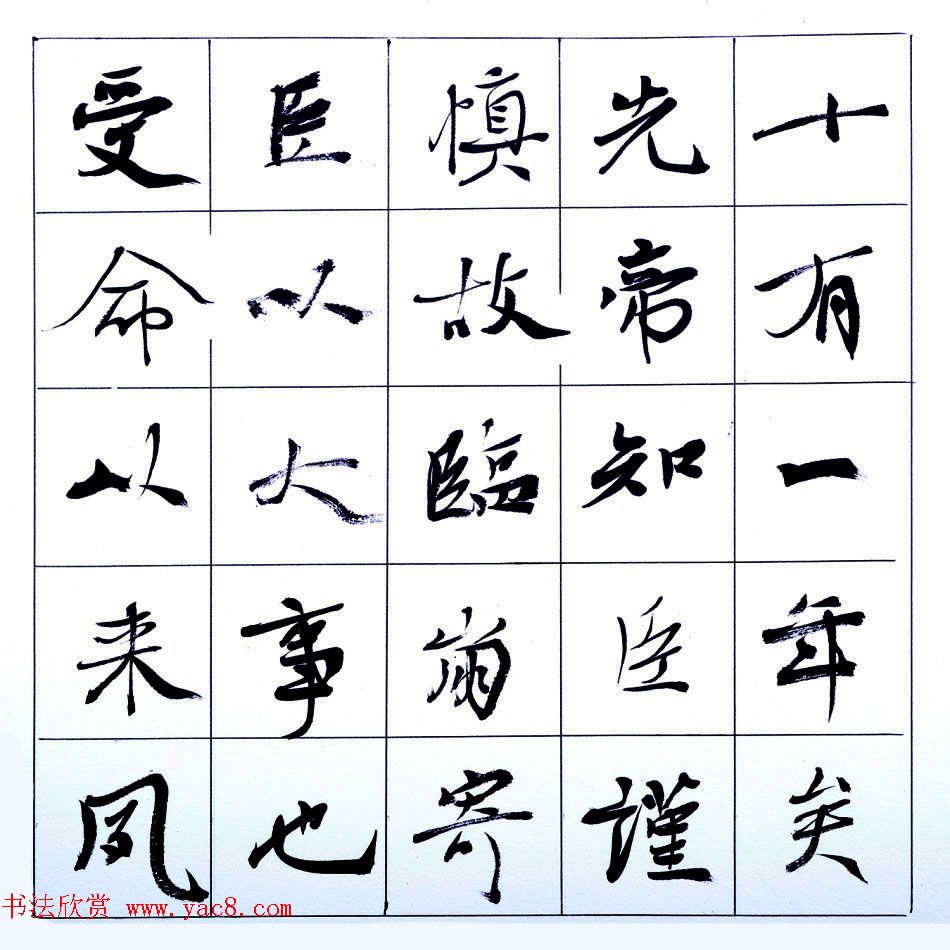 十有一年矣
先帝知臣謹
慎故臨崩寄
臣以大事也
受命以来夙
书法欣赏 www.yac8.com